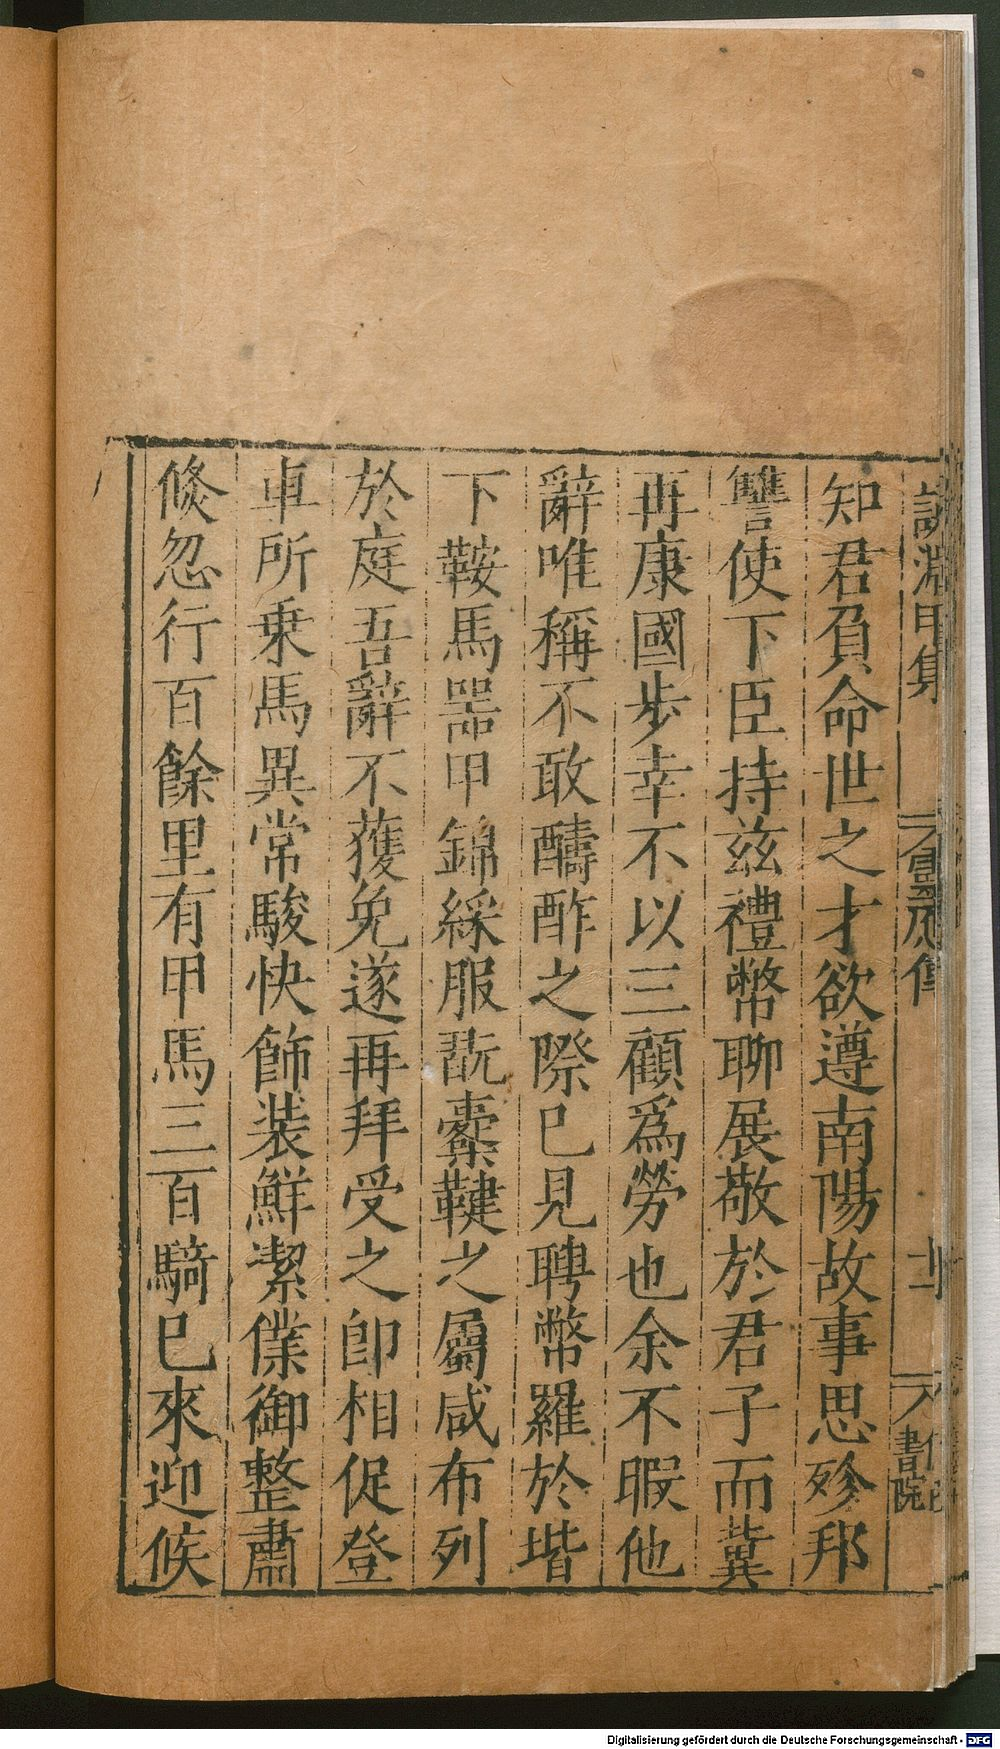 知君負命世之才欲遵南陽故事思殄邦
讐使下臣持兹禮幣聊展敬於君子而兾
再康國步幸不以三顧爲勞也余不暇他
辭唯稱不敢酧酢之際已見聘幣羅於堦
下鞍馬噐甲錦綵服翫櫜鞬之屬咸布列
於庭吾辭不獲免遂再拜受之即相促登
車所乗馬異常駿快飾装鮮潔僕御整肅
倐忽行百餘里有甲馬三百騎已來迎候
淵甲集
書院
Digitalisierung gefördert durch die Deutsche Forschungsgemeinschaft - DFG